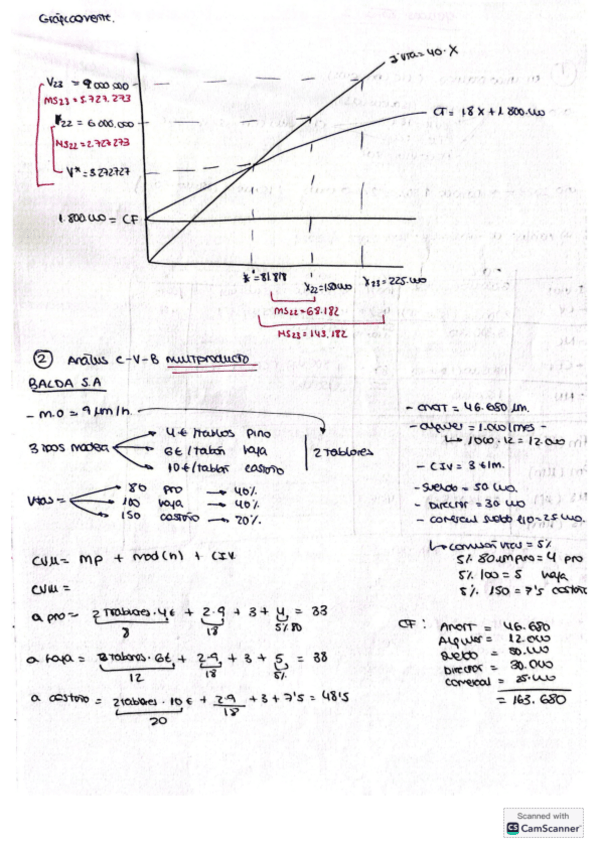 Gráficamente.
I vta = 40 · X
V23 = 9000.000
MS23 = 5.727.273
CT = 18 X + 1.800.000
V22 = 6000.000
MS22 = 2.727.273
V* = 3.272727
1.800.000 = CF
X* = 81.818
X22 = 150.000
X23 = 225.000
MS22 = 68.182
MS23 = 143.182
② Análisis C-V-B multiproducto
BALDA S.A
- M.O = 9 um/h.
3 tipos madera
4 € / tablos pino
6 € / tablón haya
10 € / tablón castaño
2 tablones
Vtas =
80 pino → 40%
100 haya → 40%
150 castaño → 20%
- amort = 46.680 um.
- alquiler = 1.000 / mes -
↳ 1000 · 12 = 12.000
- CIV = 3 € / m.
- Sueldo = 50.000.
- Director = 30.000
- comercial sueldo fijo = 25.000.
↳ comisión vtas = 5%
5% 80 um pino = 4 pino
5% 100 = 5 haya
5% 150 = 7'5 castaño
CVu = MP + mod (h) + CIV.
CVu =
a pino = 2 tablones · 4€ + 2·9 + 3 + 4 = 33
8 18 5% 80
a haya = 2 tablones · 6€ + 2·9 + 3 + 5 = 38
12 18 5%
a castaño = 2 tablones · 10 € + 2·9 + 3 + 7'5 = 48'5
20 18
CF : Amort = 46.680
Alquiler = 12.000
Sueldo = 50.000
Director = 30.000
Comercial = 25.000
= 163.680
Scanned with
CS CamScanner